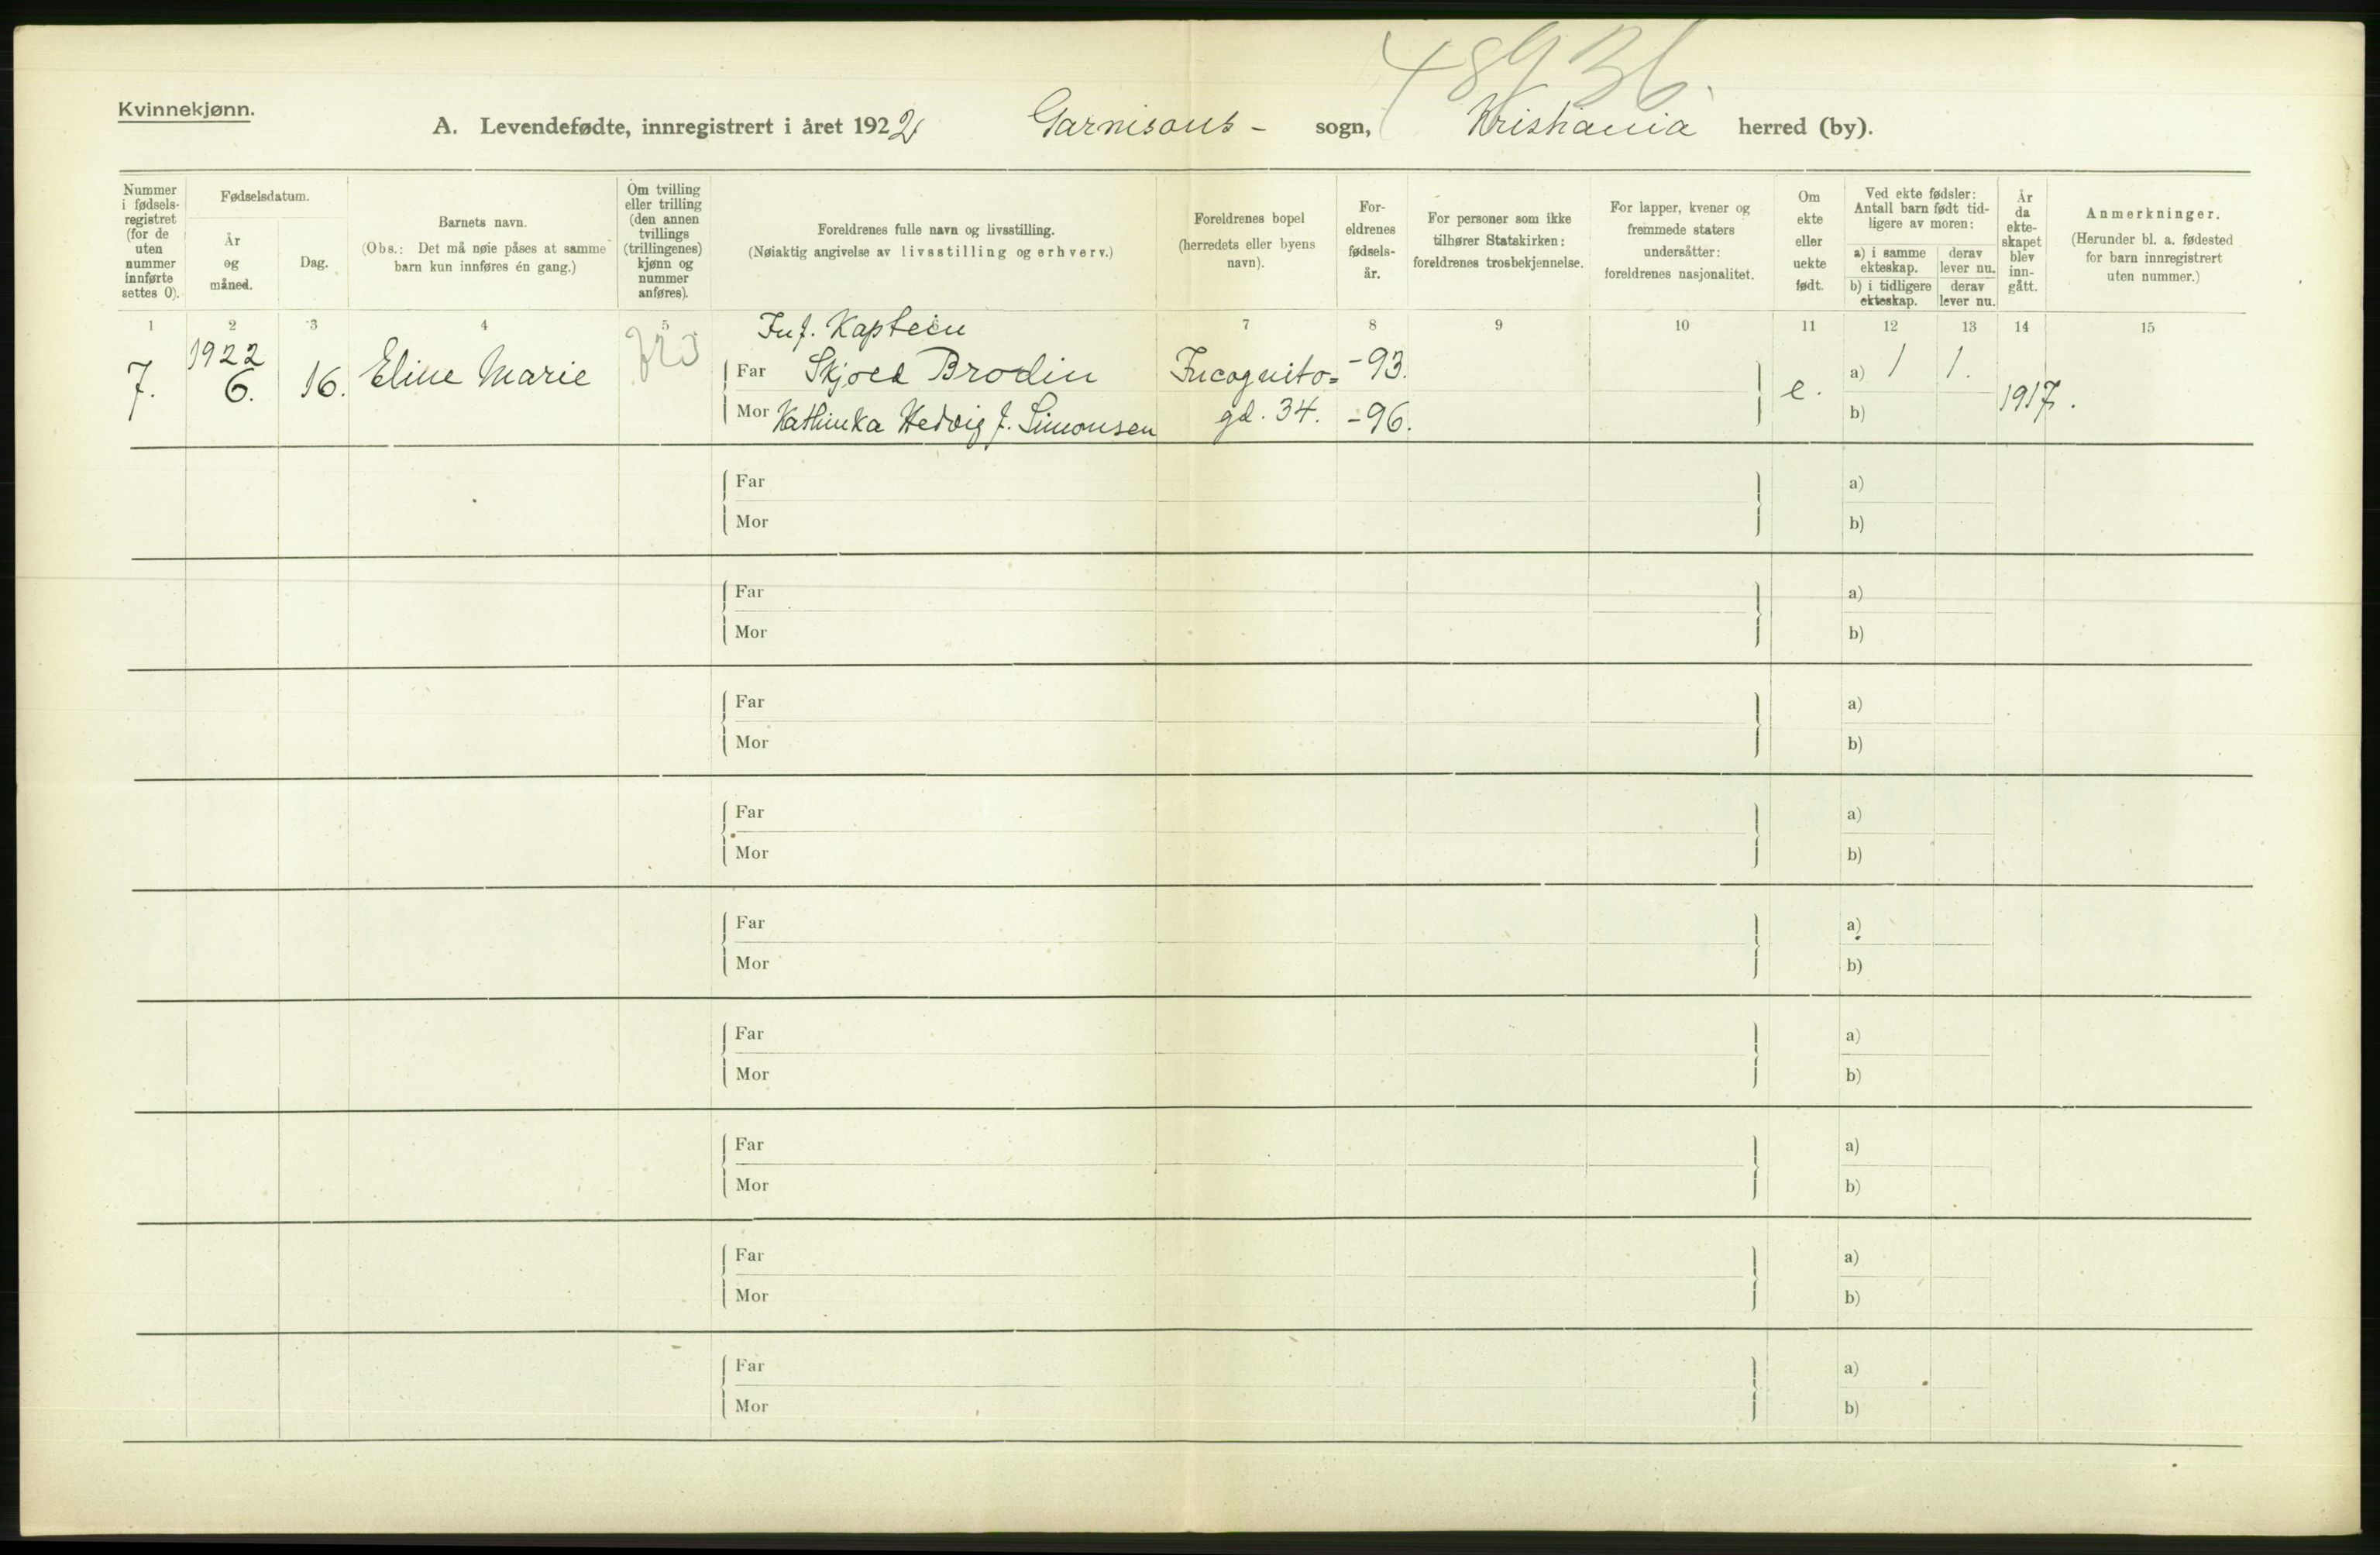 48936.
Kvinnekjønn.
A. Levendefødte, innregistrert i året 1922 Garnisons- sogn, Kristiania herred (by).
Nummer i fødsels-registret (for de uten nummer innførte settes 0).
Fødselsdatum.
År og måned.
Dag.
Barnets navn.
(Obs.: Det må nøie påses at samme barn kun innføres én gang.)
Om tvilling eller trilling (den annen tvillings (trillingenes) kjønn og nummer anføres).
Foreldrenes fulle navn og livsstilling.
(Nøiaktig angivelse av livsstilling og erhverv.)
Foreldrenes bopel (herredets eller byens navn).
For-eldrenes fødsels-år.
For personer som ikke tilhører Statskirken: foreldrenes trosbekjennelse.
For lapper, kvener og fremmede staters undersåtter: foreldrenes nasjonalitet.
Om ekte eller uekte født.
Ved ekte fødsler: Antall barn født tid-ligere av moren:
a) i samme ekteskap.
derav lever nu.
b) i tidligere ekteskap.
derav lever nu.
År da ekte-skapet blev inn-gått.
Anmerkninger.
(Herunder bl. a. fødested for barn innregistrert uten nummer.)
1 2 3 4 5 7 8 9 10 11 12 13 14 15
Inf. Kaptein
7. 1922 6. 16. Eline Marie Far Skjold Brodin Incognito- -93. e. a) 1 1. 1917.
Mor Kathinka Hedvig J. Simonsen gd. 34. -96. b)
Far a)
Mor b)
Far a)
Mor b)
Far a)
Mor b)
Far a)
Mor b)
Far a)
Mor b)
Far a)
Mor b)
Far a)
Mor b)
Far a)
Mor b)
Far a)
Mor b)